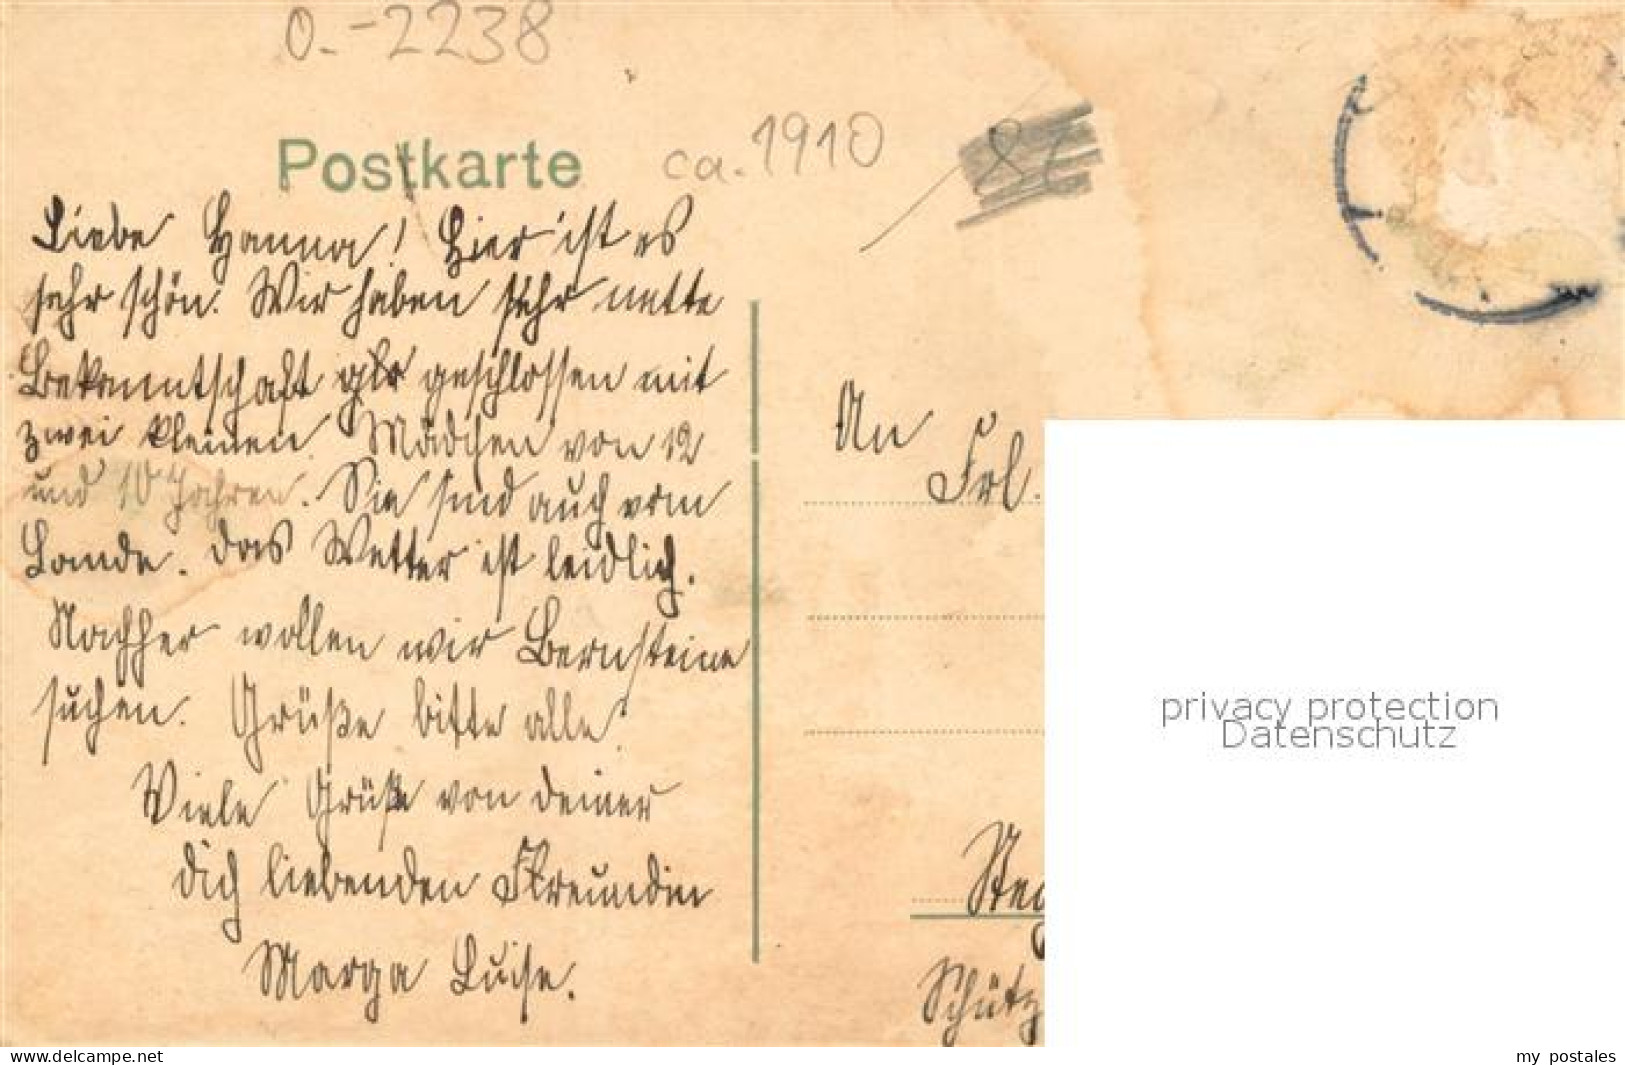 0.-2238
Postkarte
ca. 1910
Liebe Hanna! Hier ist es
sehr schön. Wir haben sehr nette
Bekanntschaft geschlossen mit
zwei kleinen Mädchen von 12
und 10 Jahren. Sie sind auch vom
Lande. Das Wetter ist leidlich.
Nachher wollen wir Bernsteine
suchen. Grüße bitte alle.
Viele Grüße von deiner
dich liebenden Freundin
Marga Luise.
An
Frl.
Steg
Schütz
privacy protection
Datenschutz
www.delcampe.net
my_postales